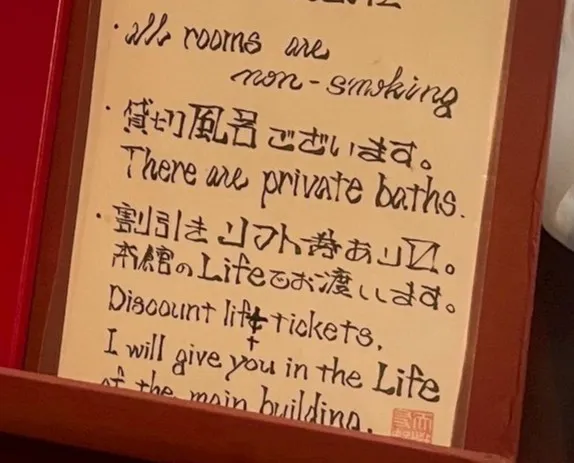 ・all rooms are
non-smoking
・貸切風呂ございます。
There are private baths.
・割引きリフト券あり〼。
本館のLifeでお渡しします。
Discount lift tickets.
I will give you in the Life
of the main building.